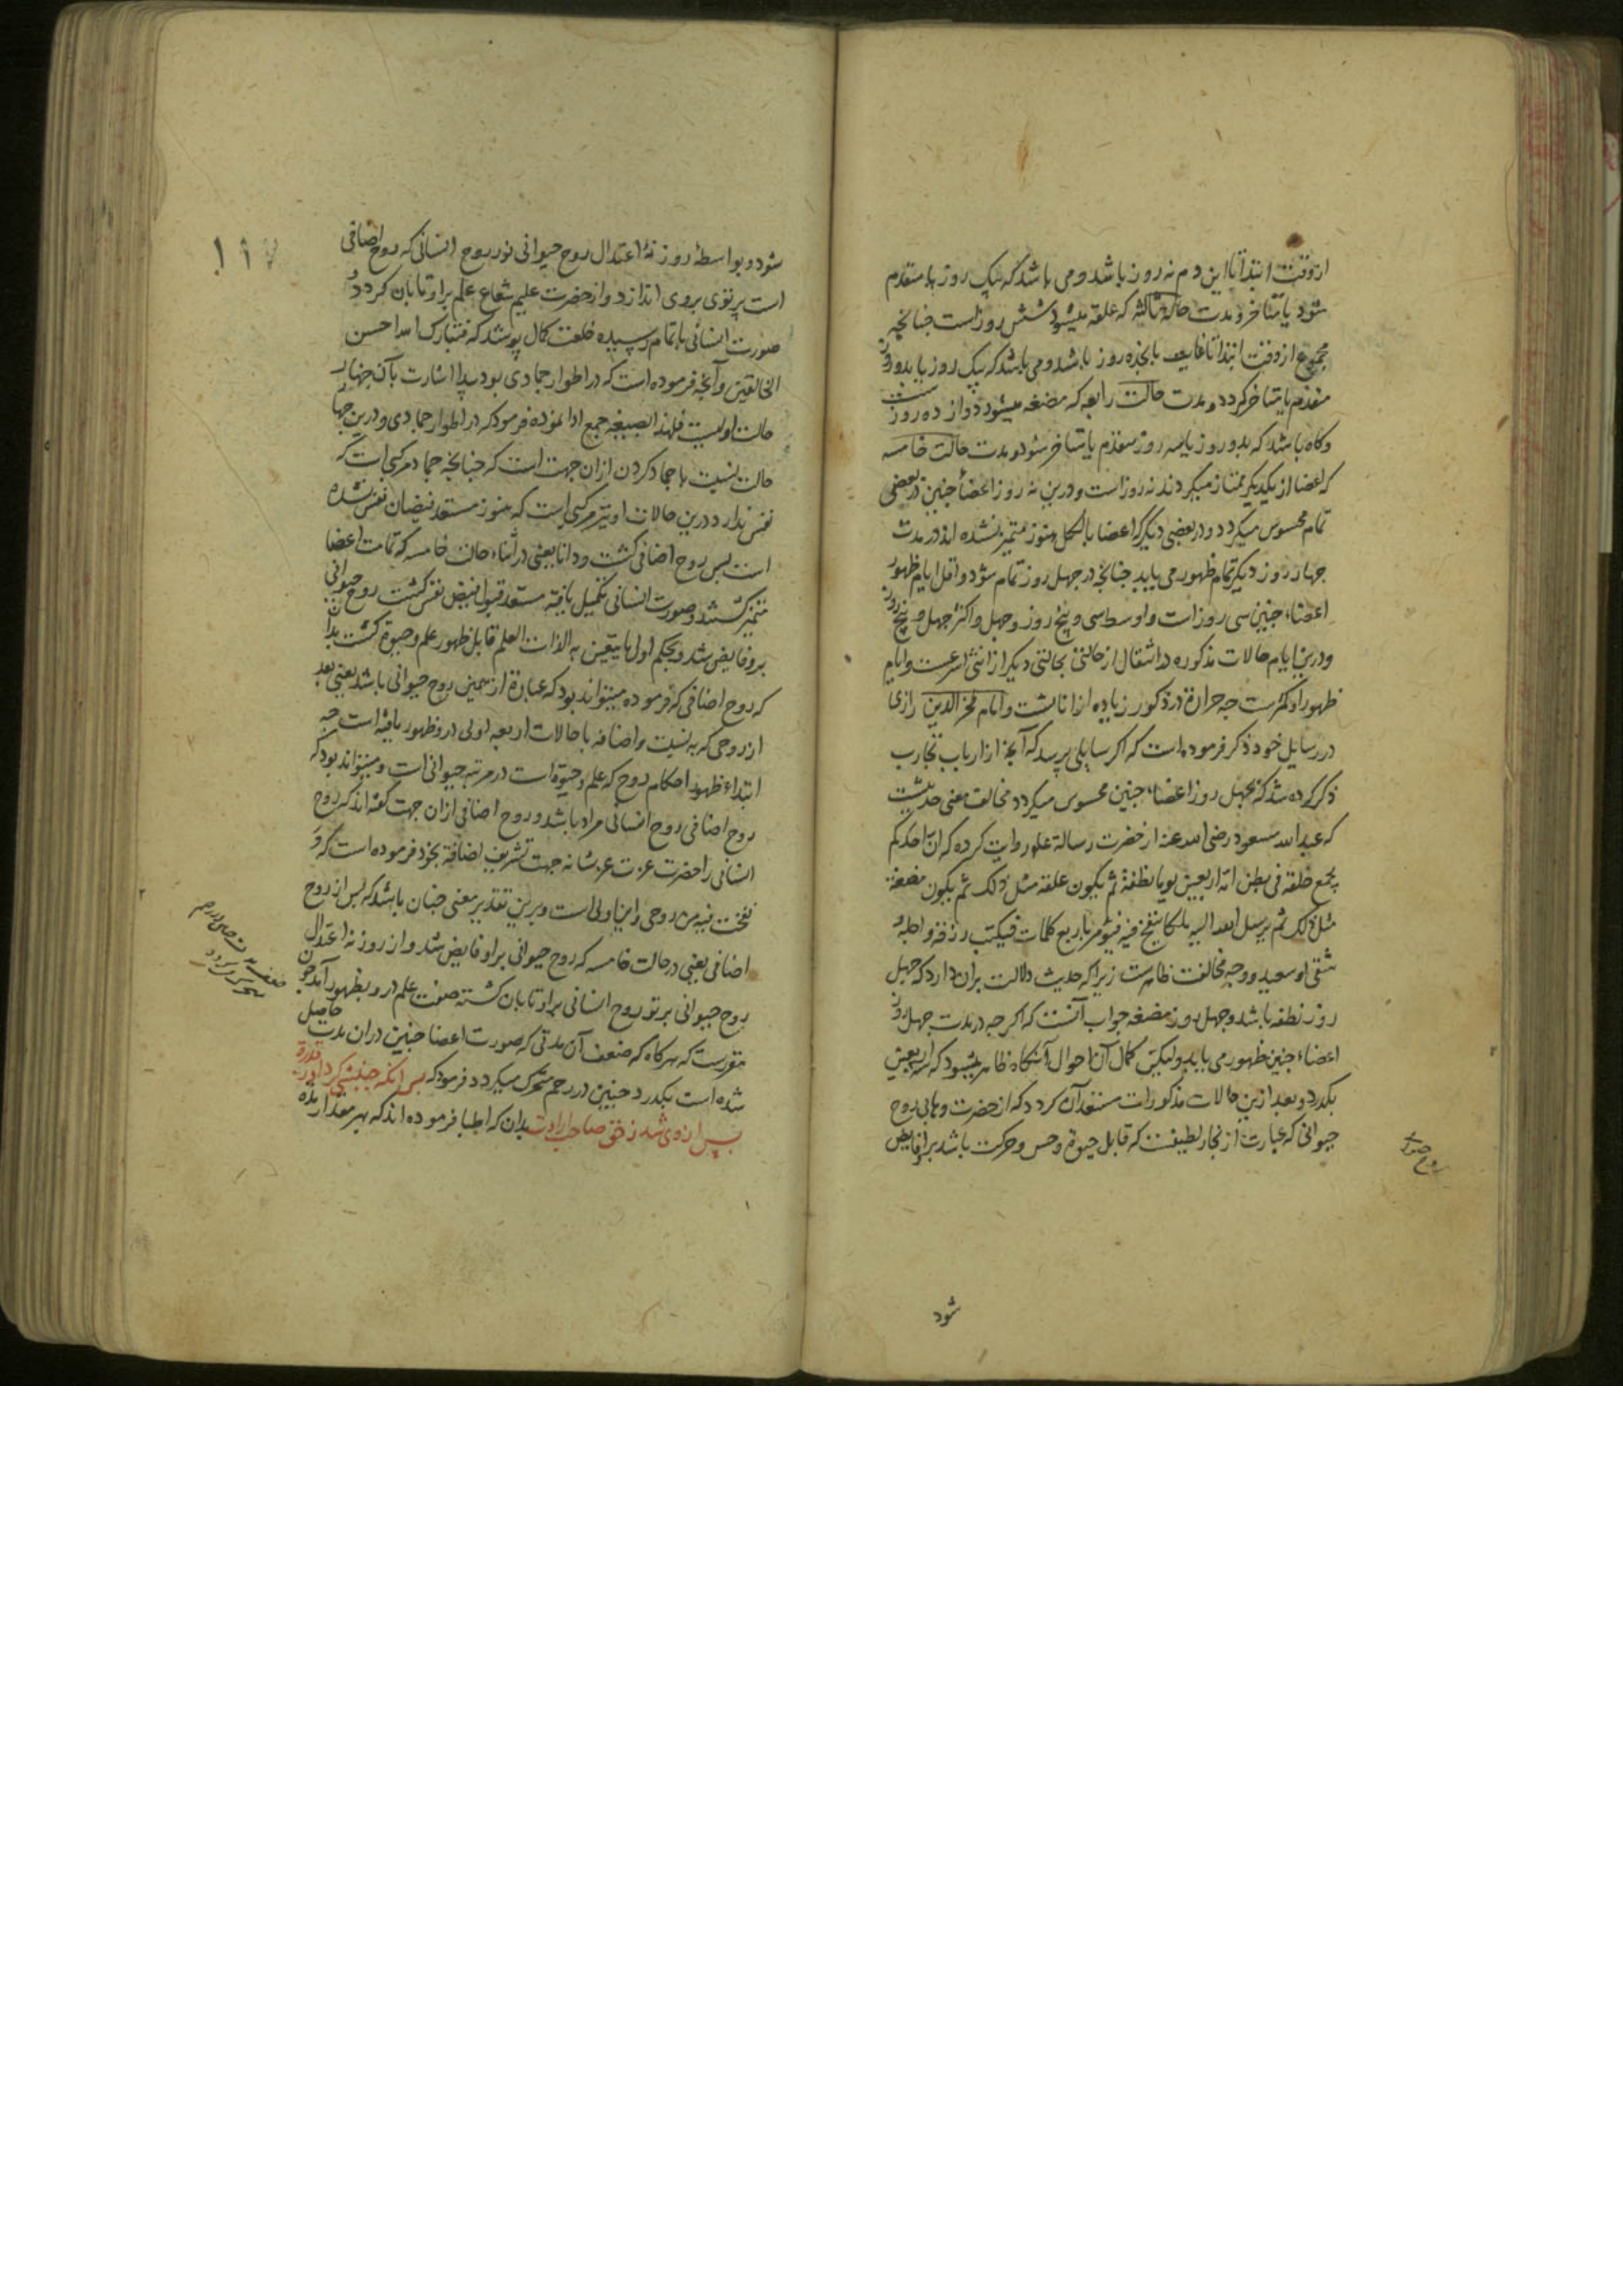 از وقت ابتدا تا این دم نه روز باشد و می باشد که یک روز یا متقدم
شود یا متاخر و مدت حاله ثالثه که علقه میشود شش روز است جنانچه
مجموع از وقت ابتدا تا غایت پانجده روز باشد و می باشد که یک روز یا بدو روز
متقدم یا متاخر کردد و مدت حالت رابعه که مضغه میشود دوازده روز است
و کاه باشد که بدو روز یا سه روز متقدم یا متاخر شود و مدت حالت خامسه
که اعضا از یکدیکر ممتاز میکردند نه روز است و درین نه روز اعضأ جنین در بعضی
تمام محسوس میکردد و در بعضی دیکر که اعضا بالکل هنوز متمیز نشده اند در مدت
جهار روز دیکر تمام ظهور می یابد جنانچه در جهل روز تمام شود و اقل ایام ظهور
اعضاء جنین سی روز است و اوسط سی و پنج روز و جهل و اکثر جهل و پنج روز
و درین ایام حالات مذکوره در انتقال از حالتی بحالتی دیکر از انثی اسرعست و ایام
ظهور او کمترست جه حرارة در ذکور زیاده از اناثست و امام فخر الدین رازی
در رسایل خود ذکر فرموده است که اکر سایلی پرسد که آنچه از ارباب تجارب
ذکر کرده شد که بجهل روز اعضاء جنین محسوس میکردد مخالف معنی حدیثیست
که عبد الله مسعود رضی الله عنه از حضرت رسالة علیه روایت کرده که ان احدکم
یجمع خلقه فی بطن امه اربعین یوما نطفة ثم یکون علقه مثل ذلک ثم یکون مضغة
مثل ذلک ثم یرسل الله الیه ملکا ینفخ فیه فیؤمر باربع کلمات فیکتب رزقه و اجله
شقی او سعید و وجه مخالفت ظاهرست زیرا که حدیث دلالت بران دارد که جهل
روز نطفه باشد و جهل روز مضغه جواب آنست که اکر جه در مدت جهل روز
اعضاء جنین ظهور می یابد ولیکن کمال آن احوال آنکاه ظاهر میشود که سه اربعین
بکذرد و بعد از این حالات مذکورات مستعد آن کردد که از حضرت وهابی روح
حیوانی که عبارت از بخار لطیفست که قابل حیوة و حس و حرکت باشد برو فایض
شود
۱۹۷
شود و بواسطهٔ روزنهٔ اعتدال روح حیوانی نور روح انسانی که روح اضافی
است پرتوی بروی اندازد و از حضرت علیم شعاع علم براو تابان کردد و
صورت انسانی باتمام رسیده خلعت کمال پوشد که فتبارک الله احسن
الخالقین و آنچه فرموده است که در اطوار جمادی بود پیدا اشارت بآن جهار
حالت اولیست فلهذا بصیغهٔ جمع ادا نموده فرمود که در اطوار جمادی و درین جهار
حالت نسبت باجماد کردن ازان جهت است که جنانچه جماد مرکبی است که
نفس ندارد درین حالات او نیز مرکبی است که هنوز مستعد فیضان نفس نشده
است پس روح اضافی کشت و دانا یعنی در اثناء حالت خامسه که تمامت اعضا
متمیز کشتند و صورت انسانی تکمیل یافته مستعد قبول فیض نفس کشت روح حیوانی
برو فایض شد و بحکم اول ما یتعین به الذات العلم قابل ظهور علم و حیوة کشت بدان
که روح اضافی که فرموده میتواند بود که عبارة از همین روح حیوانی باشد یعنی بعد
از روحی که به نسبت و اضافه باحالات اربعه اولی درو ظهور یافته است جه
ابتداء ظهور احکام روح که علم و حیوة است در مرتبه حیوانی است و میتواند بود که
روح اضافی روح انسانی مراد باشد و روح اضافی ازان جهت کفته اند که روح
انسانی را حضرت عزت عز شانه جهت تشریف اضافة بخود فرموده است که و
نفخت فیه من روحی و این اولی است و برین تقدیر معنی جنان باشد که پس از روح
اضافی یعنی در حالت خامسه که روح حیوانی براو فایض شد و از روزنه اعتدال
روح حیوانی پرتو روح انسانی براو تابان کشته صفت علم درو بظهور آمد جون
مقررست که هر کاه که ضعف آن مدتی که صورت اعضا جنین دران مدت حاصل
شده است بکذرد جنین در رحم متحرک میکردد فرمود که پس آنکه جنبشی کرد او ز قدرة
پس از وی شد ز حق صاحب ارادت بدان که اطبا فرموده اند که بهر مقدار مدة